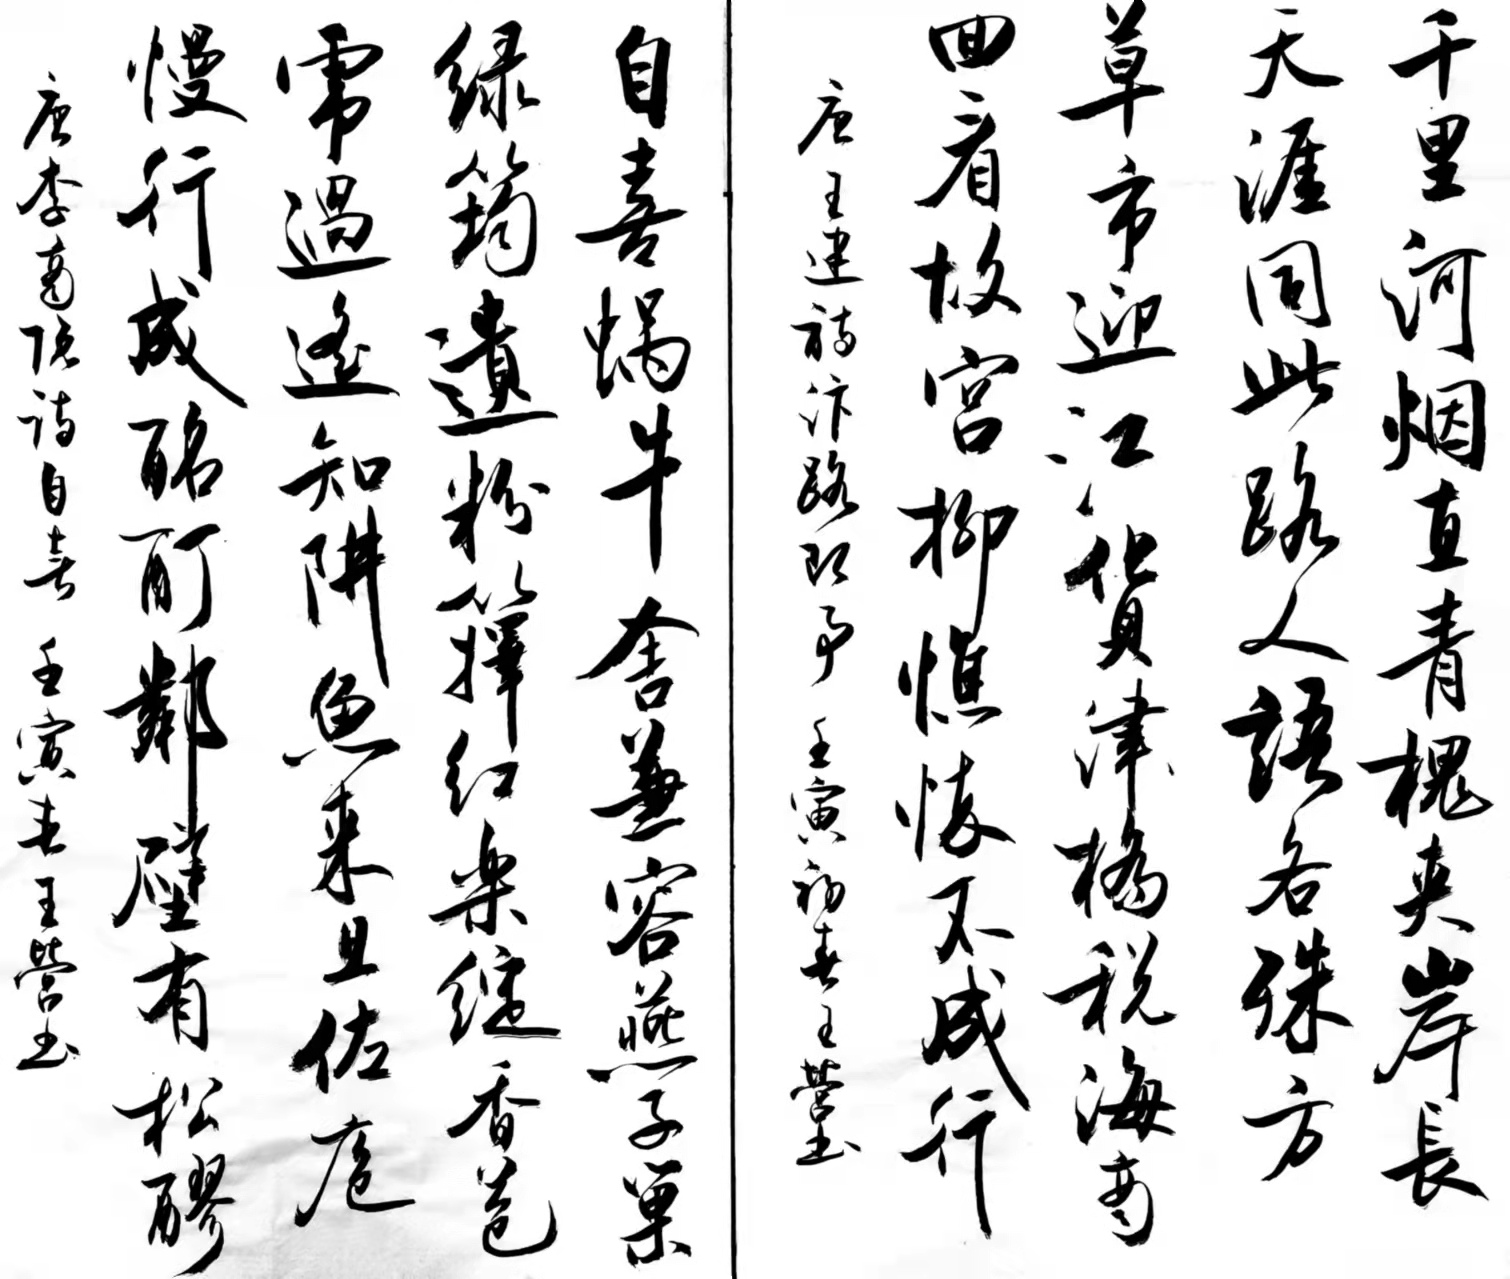 千里河烟直青槐夾岸長
天涯同此路人語各殊方
草市迎江貨津橋税海商
回看故宫柳憔悴不成行
唐王建詩汴路即事 壬寅初春王營书
自喜蝸牛舍兼容燕子巢
緑筠遺粉籜紅薬綻香苞
虎過遥知阱魚来且佐庖
慢行成酩酊鄰壁有松醪
唐李商隐詩自喜 壬寅春王營书